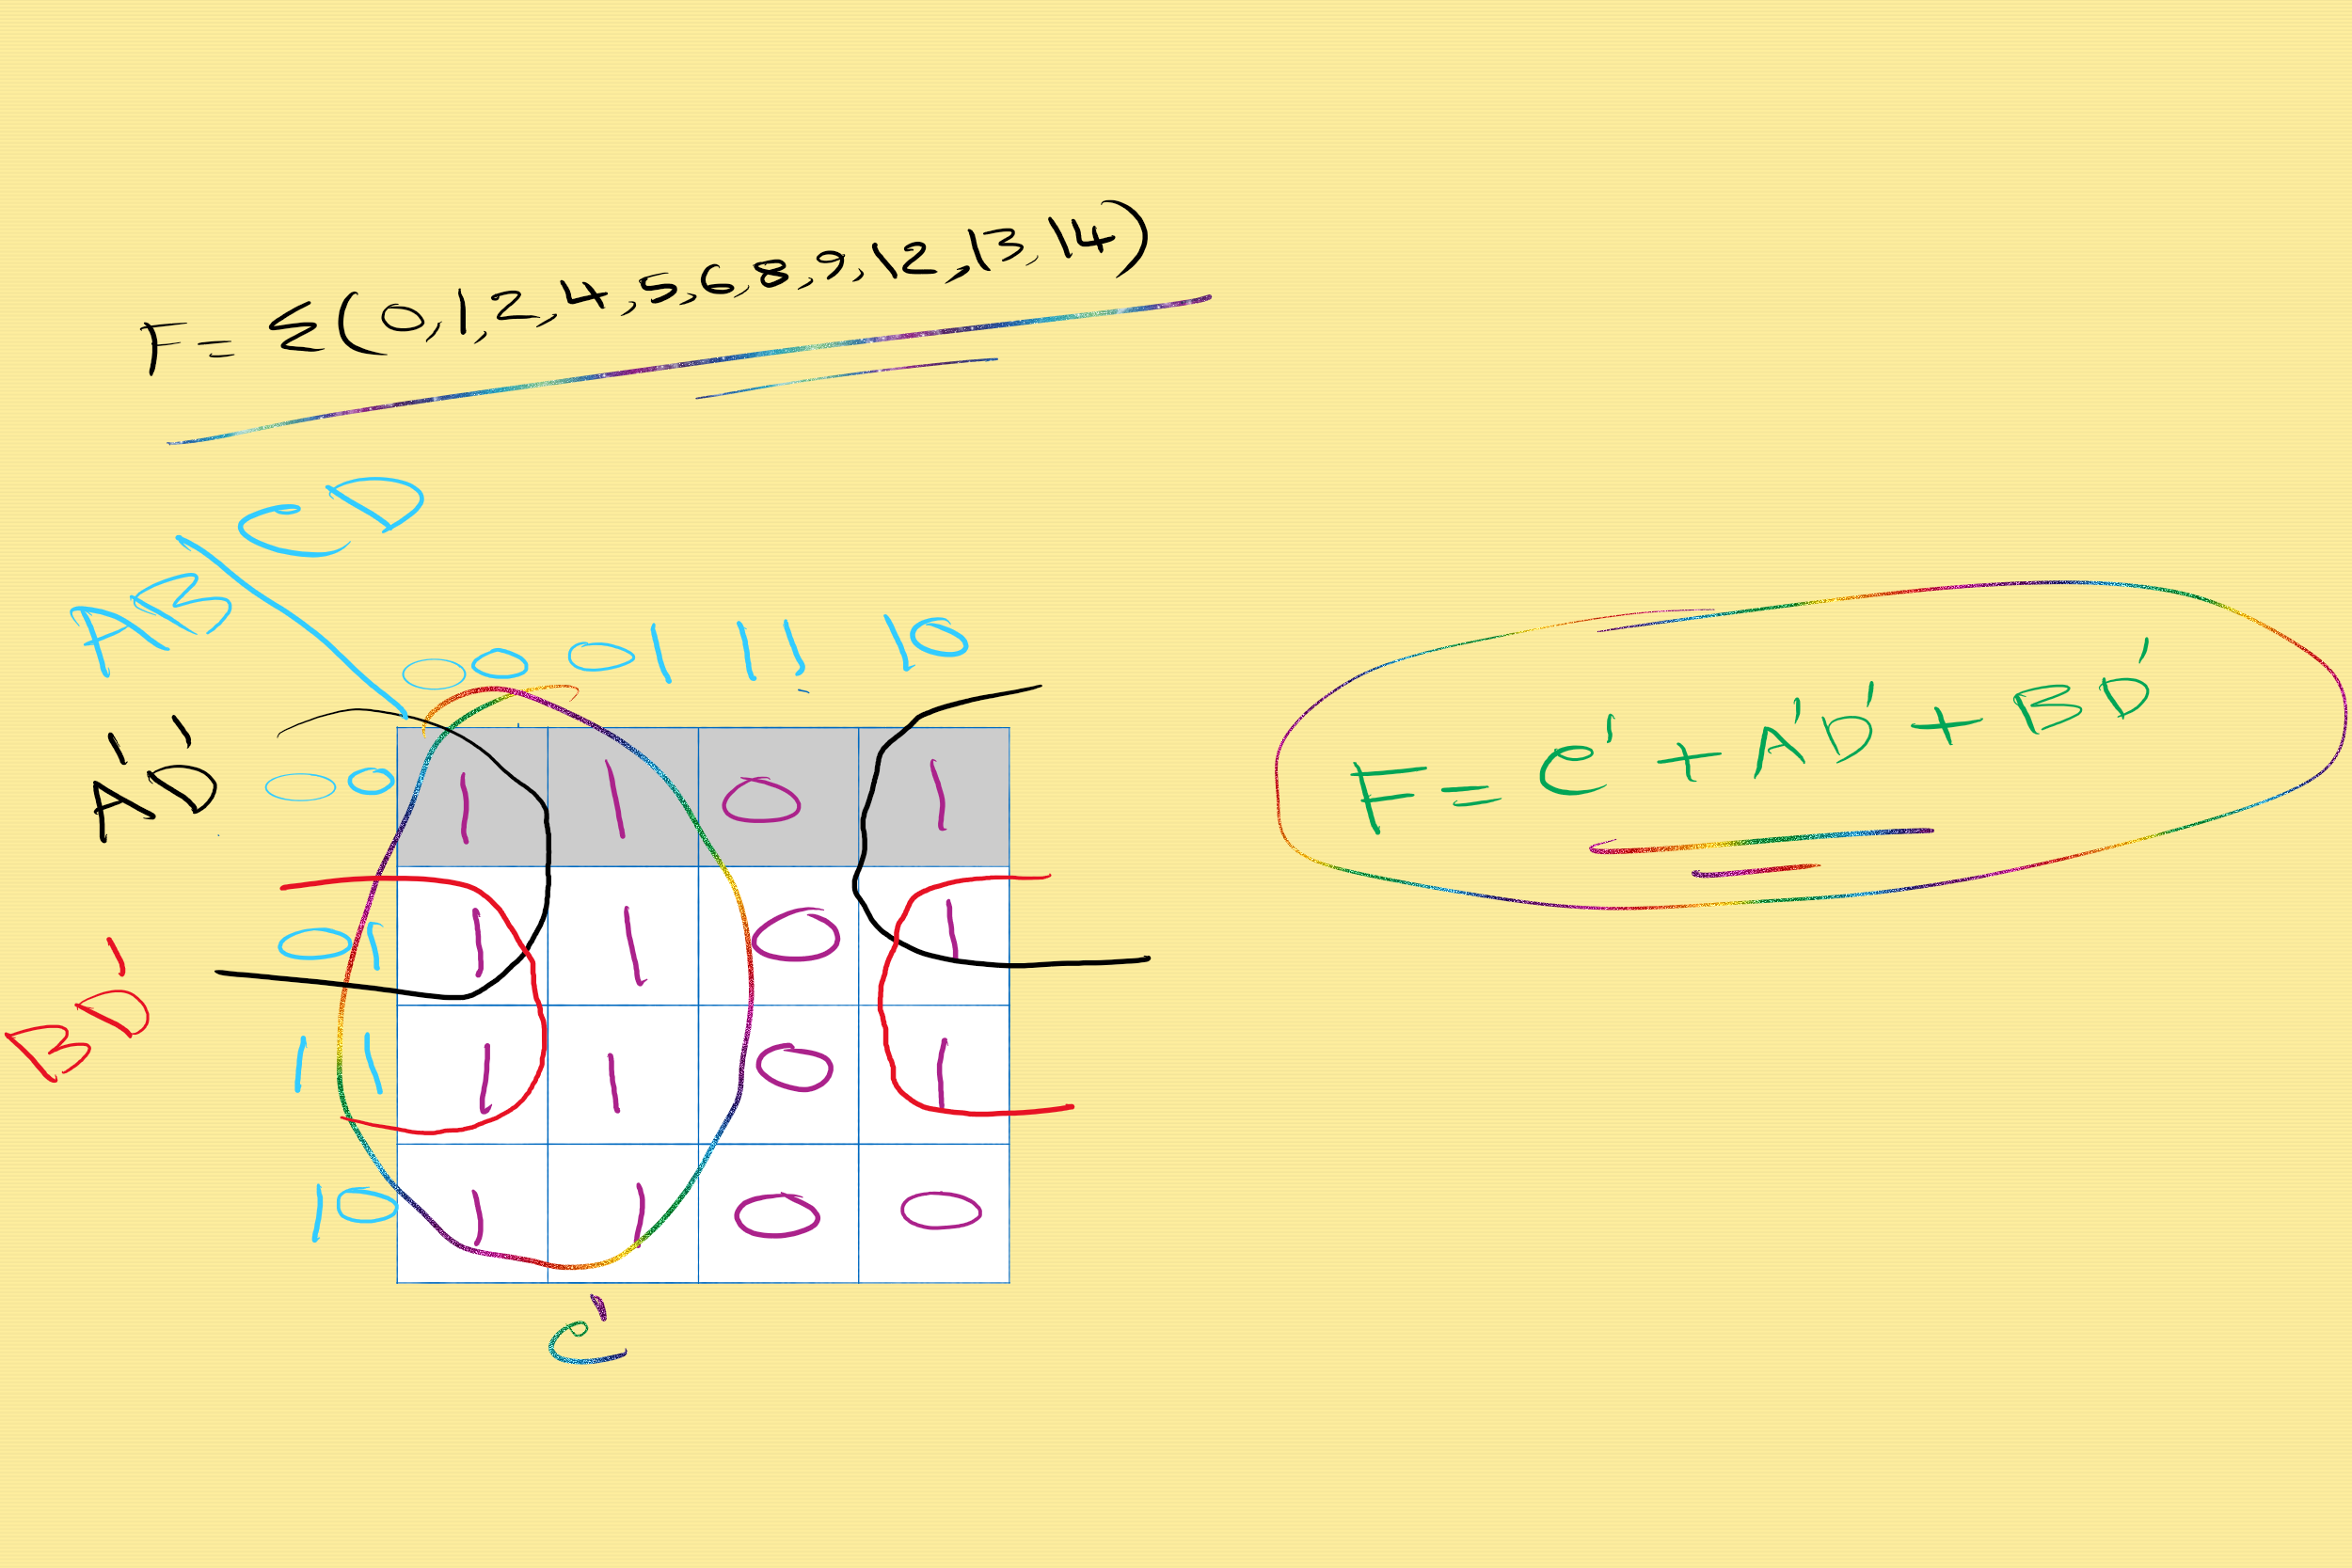 F= Σ(0,1,2,4,5,6,8,9,12,13,14)
AB\CD
00 01 11 10
A'D' 00 1 1 0 1
01 1 1 0 1
BD' 11 1 1 0 1
10 1 1 0 0
C'
F= C' + A'D' + BD'